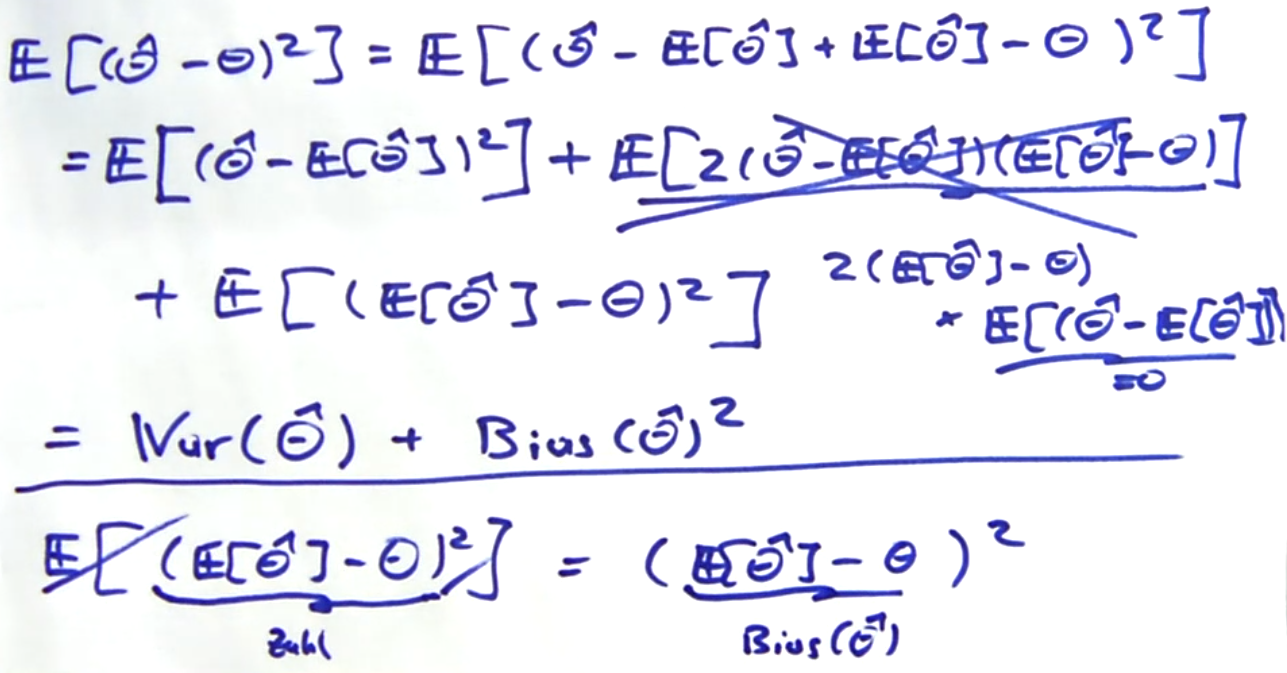 𝔼[(θ̂ - θ)²] = 𝔼[(θ̂ - 𝔼[θ̂] + 𝔼[θ̂] - θ)²]
= 𝔼[(θ̂ - 𝔼[θ̂])²] + 𝔼[2(θ̂ - 𝔼[θ̂])(𝔼[θ̂] - θ)]
+ 𝔼[(𝔼[θ̂] - θ)²]
2(𝔼[θ̂] - θ)
* 𝔼[(θ̂ - 𝔼[θ̂])]
=0
= 𝕍ar(θ̂) + Bias(θ̂)²
𝔼[(𝔼[θ̂] - θ)²] = (𝔼[θ̂] - θ)²
Zahl
Bias(θ̂)